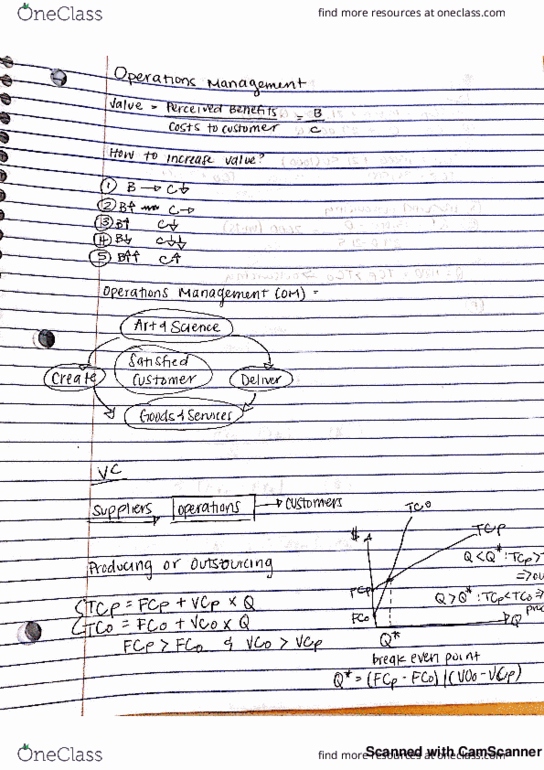 OneClass
find more resources at oneclass.com
Operations Management
Value = Perceived Benefits = B
costs to customer C
How to increase value?
① B → C↓
② B↑ C→
③ B↑ C↓
④ B↓ C↓↓
⑤ B↑↑ C↑
Operations Management (OM) -
Art & Science
Satisfied
Customer
Create
Deliver
Goods & Services
VC
Suppliers operations → customers
Producing or Outsourcing
TCp = FCp + VCp x Q
TCo = FCo + VCo x Q
FCp > FCo & VCo > VCp
$
TCo
TCp
Q < Q* : TCp >
=> ou
FCp
Q > Q* : TCp < TCo =>
FCo
Q
Q*
break even point
Q* = (FCp - FCo) / (VCo - VCp)
OneClass
find more resources at oneclass.com
Scanned with CamScanner